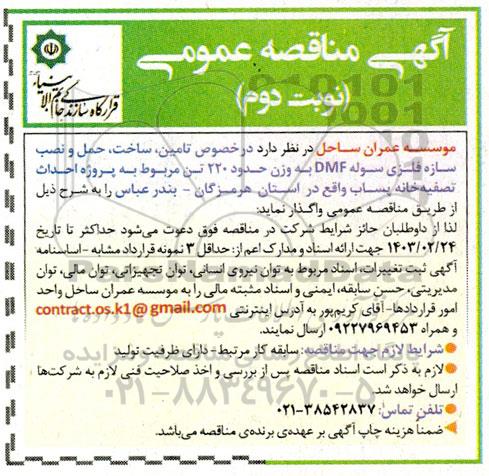 آگهی مناقصه عمومی
(نوبت دوم)
قرارگاه سازندگی خاتم الانبیاء
موسسه عمران ساحل در نظر دارد درخصوص تامین، ساخت، حمل و نصب
سازه فلزی سوله DMF به وزن حدود ۲۲۰ تن مربوط به پروژه احداث
تصفیه‌خانه پساب واقع در استان هرمزگان - بندر عباس را به شرح ذیل
از طریق مناقصه عمومی واگذار نماید:
لذا از داوطلبان حائز شرایط شرکت در مناقصه فوق دعوت می‌شود حداکثر تا تاریخ
۱۴۰۳/۰۲/۲۴ جهت ارائه اسناد و مدارک اعم از: حداقل ۳ نمونه قرارداد مشابه - اساسنامه
آگهی ثبت تغییرات، اسناد مربوط به توان نیروی انسانی، توان تجهیزاتی، توان مالی، توان
مدیریتی، حسن سابقه، ایمنی و اسناد مثبته مالی را به موسسه عمران ساحل واحد
امور قراردادها- آقای کریم‌پور به آدرس اینترنتی contract.os.k1@gmail.com
و همراه ۰۹۲۲۷۹۶۹۴۵۳ ارسال نمایند.
شرایط لازم جهت مناقصه: سابقه کار مرتبط - دارای ظرفیت تولید
لازم به ذکر است اسناد مناقصه پس از بررسی و اخذ صلاحیت فنی لازم به شرکت‌ها
ارسال خواهد شد.
تلفن تماس: ۳۸۵۴۲۸۳۷-۰۲۱
ضمناً هزینه چاپ آگهی بر عهده‌ی برنده‌ی مناقصه می‌باشد.
۰۲۱-۸۸۳۴۹۶۷۰-۵